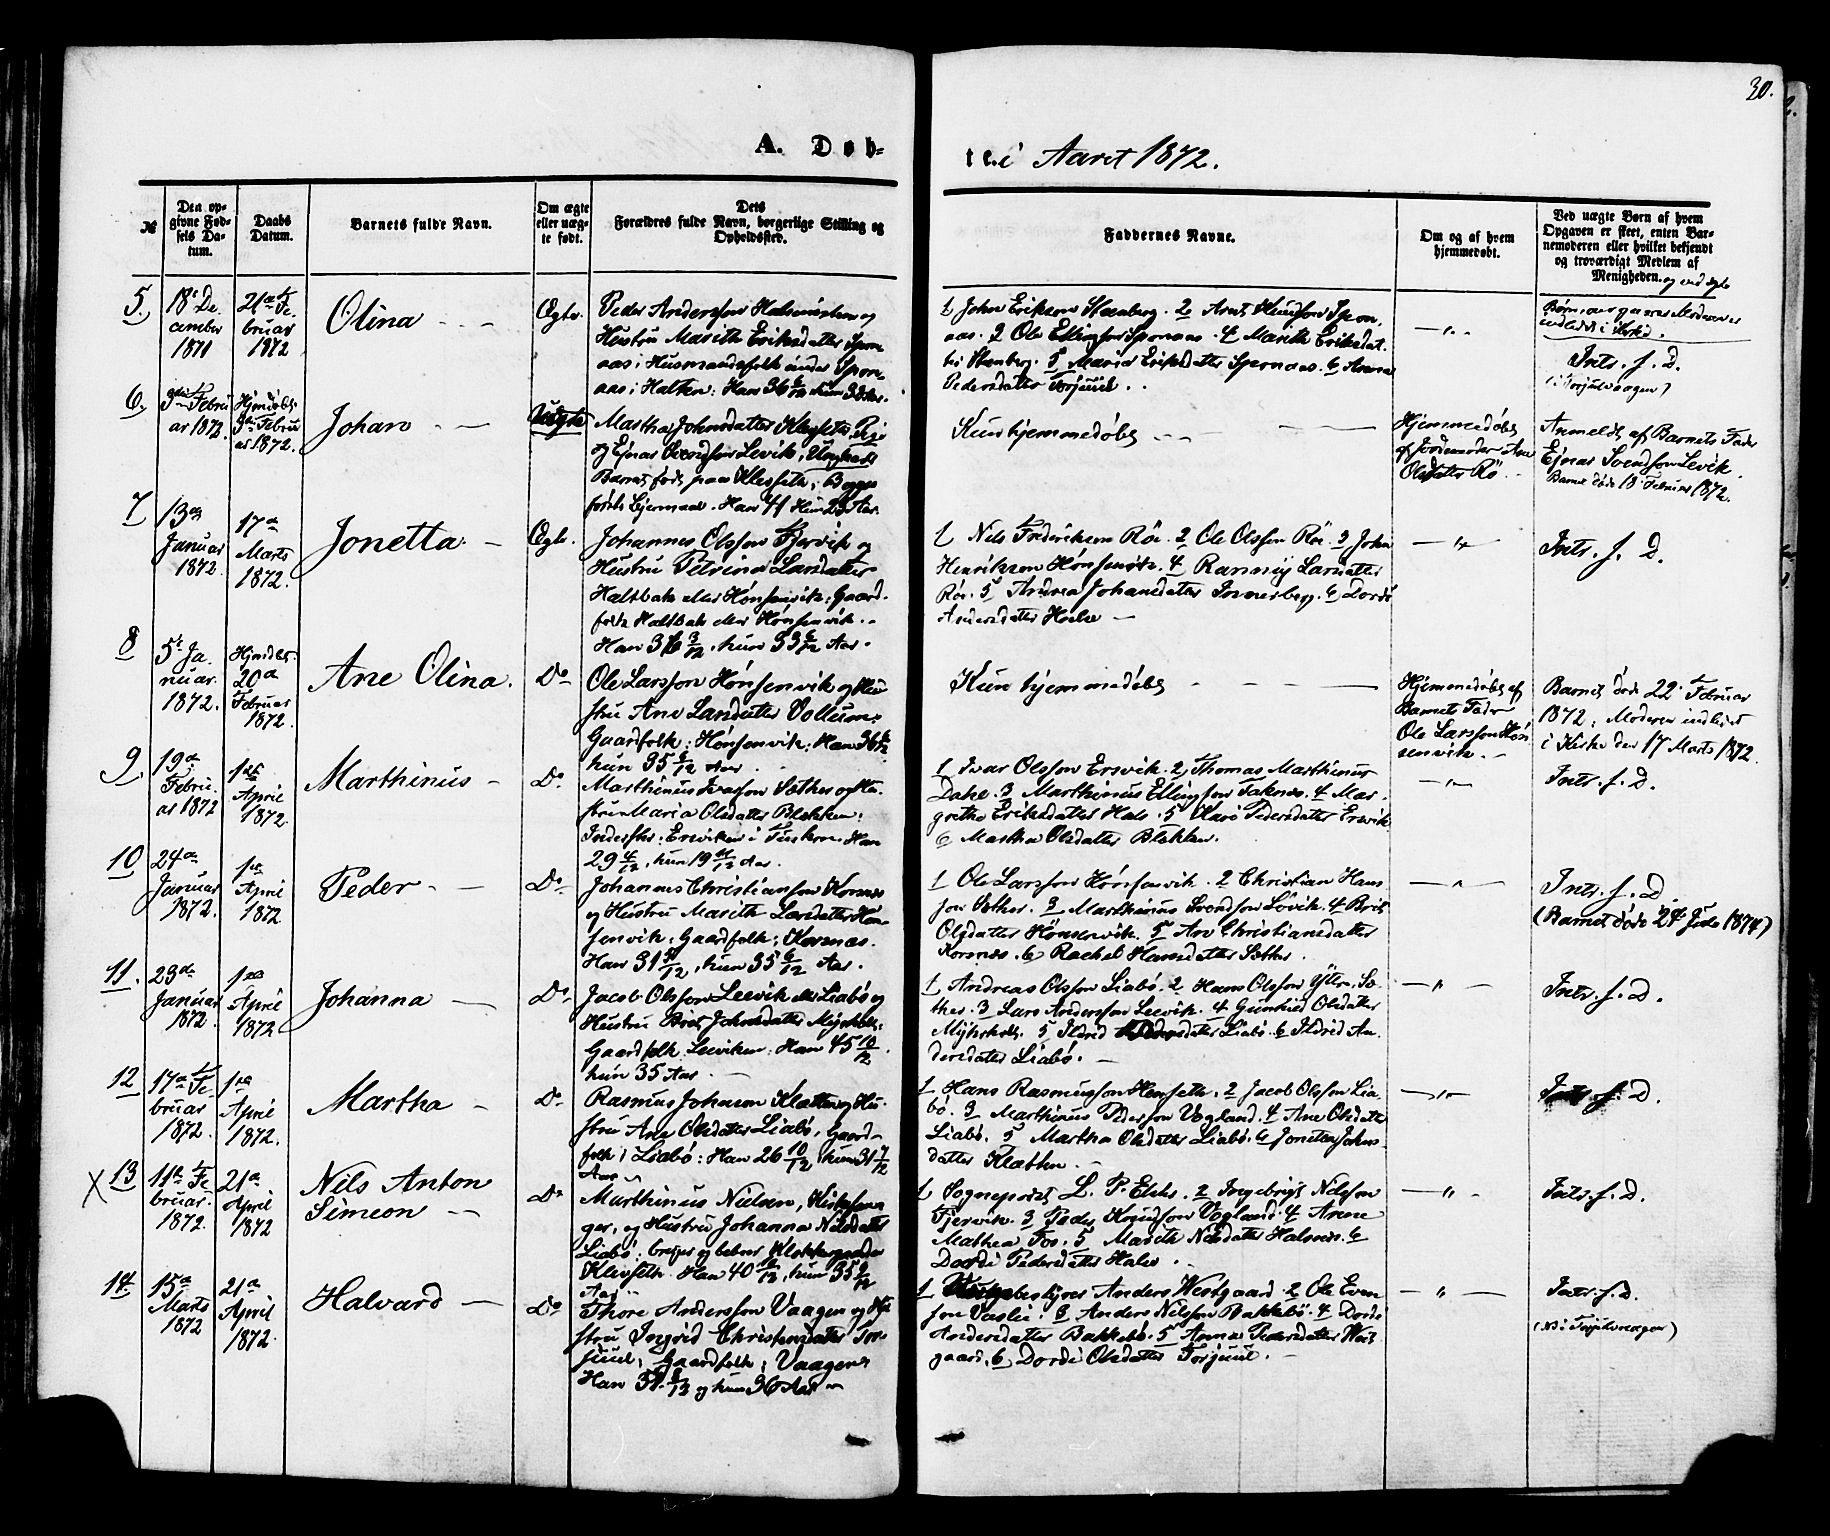 30.
A. Døb-
te i Aaret 1872.
№
Den op-
givne Fød-
sels Da-
tum.
Daabs
Datum.
Barnets fulde Navn.
Om ægte
eller uæg-
te født.
Dets
Forældres fulde Navn, borgerlige Stilling og
Opholdssted.
Faddernes Navne.
Om og af hvem
hjemmedøbt.
Ved uægte Børn af hvem
Opgaven er skeet, enten Bar-
nemoderen eller hvilket bekjendt
og troværdigt Medlem af
Menigheden. og ved ægte
5.
18de De
cember
1871
21de Fe
bruar
1872
Olina
Ægte.
Peder Andersson og
Hustru Marith Eriksdatter
aas i Husmandsfolk under
aas i Halten. Han 36
1 John Eriksen Stenberg. 2
aas. 3 Ole Ellingsson 4 Marith Eriksdat
ter Stenberg. 5 Marie Eriksdatter 6 Anne
Pedersdatter Torjuul.
Intr. f. D.
(i Torjulvaagen)
6.
Febru
ar 1872.
Hjemdøbt
Febru
ar 1872.
Johan
Uægte
Martha Johnsdatter Pige
og Ejnar Svendsson Levik, Ungkarl
Barnet født paa
Leiermaal. Han 41
Kun hjemmedøbt
Hjemmedøbt
af Jordemoder Ane
Olsdatter Rö
Anmeldt af Barnets Fader
Ejnar Svendsson Levik.
Barnet døde 18 Februar 1872.
7
13de
Januar
1872.
17de
Marts
1872.
Jonetta
Ægte.
Johannes Olsson Fjervik og
Hustru Petrina Larsdatter
Haltbak eller Hönsenvik: Gaard
folk Haltbak eller Hönsenvik.
Han 36 3/12, hun 33 6/12 Aar.
1 Nils Frederiksen Röe. 2 Ole Olsson Röe. 3 John
Henriksen Hönsenvik. 4 Rannig Larsdatter
Röe. 5 Andrea Johansdatter 6 Dordi
Andersdatter
Intr. f. D.
8
5te Ja
nuar
1872.
Hjemdøbt
20de
Februar
1872.
Ane Olina.
Do
Ole Larsson Hönsenvik og Hu
stru Ane Larsdatter Vollum:
Gaardfolk: Hönsenvik: Han 36
hun 35 Aar.
Kun hjemmedøbt
Hjemmedøbt af
Barnets Fader
Ole Larsson Hön
senvik.
Barnet døde 22 Februar
1872; Moderen indledt
i Kirke den 17 Marts 1872.
9.
19de
Febru
ar 1872
1ste
April
1872.
Marthinus
Do
Marthinus Ivarson Sæther og Hu
stru Maria Olsdatter Blekken:
Inderster: Ersviken i Tustern. Han
29 4/12, hun 19 Aar.
1 Ivar Olsson Ersvik. 2 Thomas Marthinus
Dahl. 3 Marthinus Ellingson Taknæs. 4 Mar
grethe Eriksdatter Hals. 5 Kari Pedersdatter Ersvik
6 Martha Olsdatter Blekken.
Intr. f. D.
10
24de
Januar
1872.
1ste
April
1872
Peder
Do
Johannes Christianson Korsnæs
og Hustru Marith Larsdatter Hön
senvik: Gaardfolk: Korsnæs.
Han 31, hun 35 6/12 Aar.
1 Ole Larsson Hönsenvik. 2 Christian Hans
son Sæther. 3 Marthinus Svendson Lövik. 4 Brit
Olsdatter Hönsenvik. 5 Ane Christiansdatter
Korsnæs. 6 Rachel Hansdatter Sæther.
Intr. f. D.
(Barnet døde 24 Febr 1874)
11.
23de
Januar
1872.
1ste
April
1872
Johanna
Do
Jacob Olsson Leevik eller Liabö og
Hustru Brit Johnsdatter Myrholt:
Gaardfolk: Leeviken: Han 45 10/12
hun 35 Aar.
1 Andreas Olsson Liabö. 2 Hans Olsson Ytter-Sæ
ther. 3 Lars Andersson Leevik. 4 Gunhild Olsdatter
Myhrholt. 5 Ildrid Liabö. 6 Ildrid An
dersdatter Liabö.
Intr. f. D.
12
17de Fe
bruar
1872.
1ste
April
1872.
Martha
Do
Rasmus Johnson Kletten og Hu
stru Ane Olsdatter Liabö, Gaard
folk i Liabö: Han 26 10/12, hun 31 7/12
Aar
1 Hans Rasmusson Henseth. 2 Jacob Olsson Lia
bö. 3 Marthinus Pedersson Vogland. 4 Ane Olsdatter
Liabö. 5 Martha Olsdatter Liabö. 6 Jonetta Johns
datter Kletten
Intr. f. D.
X 13
11te Fe
bruar
1872.
21de
April
1872
Nils Anton
Simeon
Do
Marthinus Nielsen, Kirkesan
ger, og Hustru Johanna Nilsdatter
Liabö: bruger og beboer Klokkergaarden
Klevseth. Han 40, hun 35
Aar
1 Sogneprest L. P. 2 Ingebrigt Nilsson
Fjervik. 3 Peder Knudson Vogland. 4 Anne
Mathea Fos. 5 Marith Nilsdatter Halsnæs. 6
Dordi Pedersdatter Halse.
Intr. f. D.
14
15de
Marts
1872
21de
April
1872.
Halvard
Do
Thore Andersson Vaagen og Hu
stru Ingrid Christensdatter Tor
juul, Gaardfolk; Vaagen.
Han og hun 36 Aar
1 Anders Westgaard. 2 Ole Even
son Vaslie. 3 Anders Nilsson Bakkebö. 4 Dordi
Andersdatter Bakkebö. 5 Anna Pedersdatter West
gaard. 6 Dordi Olsdatter Torjuul.
Intr. f. D.